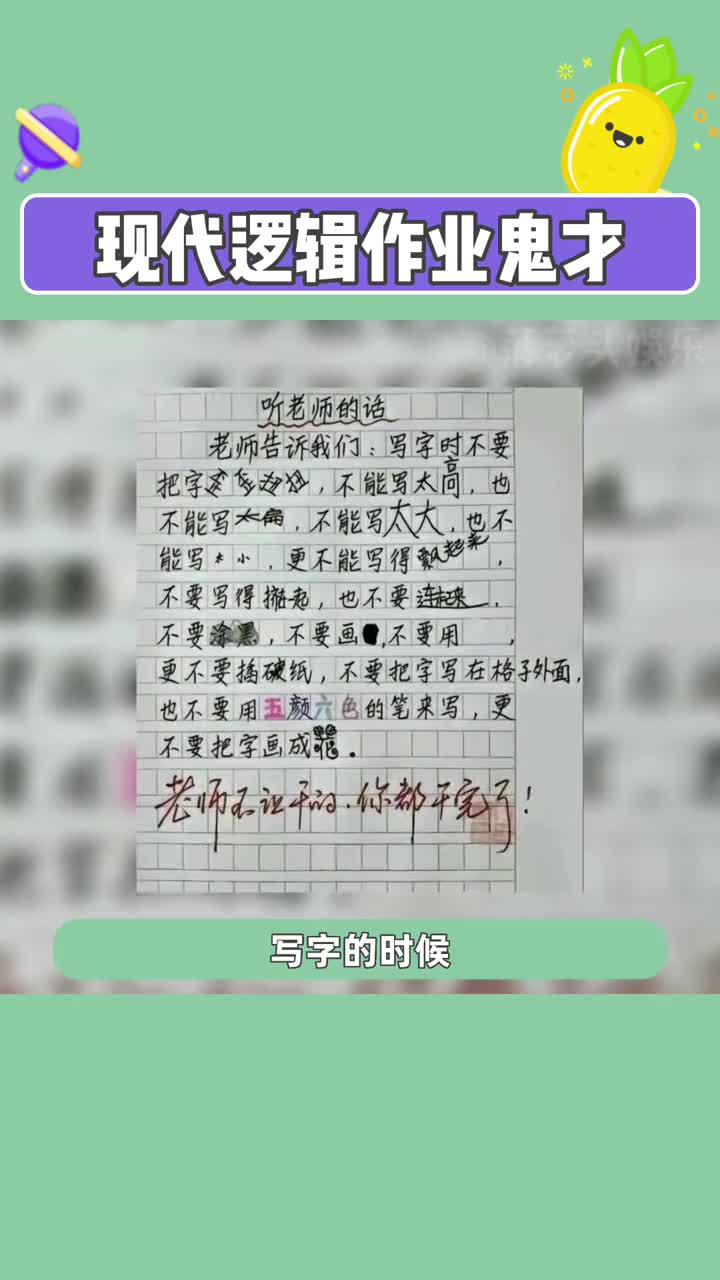 现代逻辑作业鬼才
头娱乐
听老师的话
老师告诉我们：写字时不要
把字，不能写太高，也
不能写太扁，不能写太大，也不
能写太小，更不能写得飘起来，
不要写得，也不要连起来，
不要涂黑，不要画，不要用，
更不要破纸，不要把字写在格子外面，
也不要用五颜六色的笔来写，更
不要把字画成。
老师不让干的、你都干完了！
写字的时候